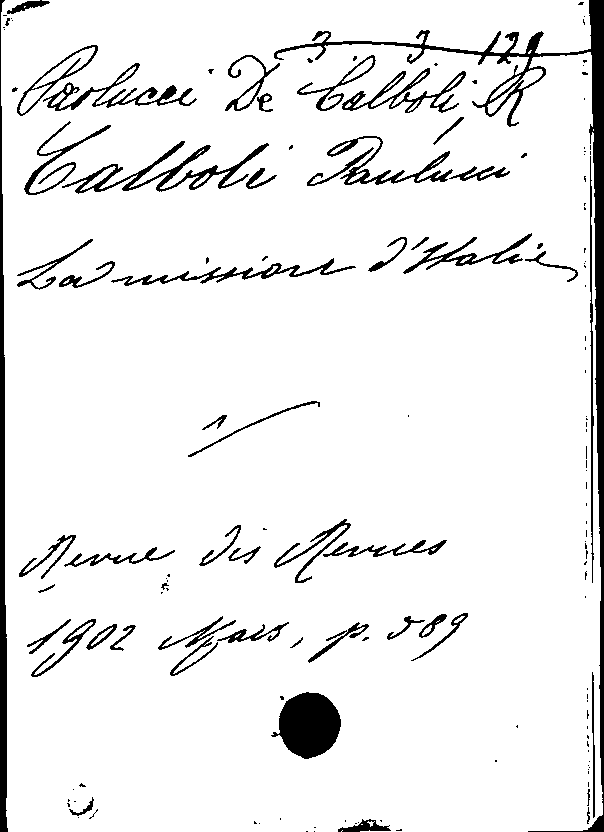 3 3 129
Paolucci De Calboli, R
Calboli Paulucci
La mission d'Italie
1
Revue des Revues
1902 Mars, p. 589